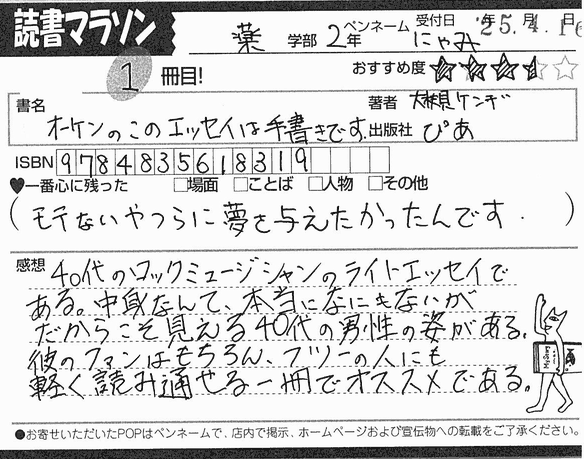 読書マラソン
薬 学部 2年
ペンネーム にゃみ
受付日 '25年 4月 16日
1 冊目!
おすすめ度 ★★★☆☆
書名 オーケンのこのエッセイは手書きです
著者 大槻ケンヂ
出版社 ぴあ
ISBN 9784835618319
♥一番心に残った □場面 □ことば □人物 □その他
(モテないやつらに夢を与えたかったんです.)
感想
40代のロックミュージシャンのライトエッセイで
ある。中身なんて、本当になにもないが
だからこそ見える40代の男性の姿がある.
彼のファンはもちろん、フツーの人にも
軽く読み通せる一冊でオススメである。
●お寄せいただいたPOPはペンネームで、店内で掲示、ホームページおよび宣伝物への転載をご了承ください。